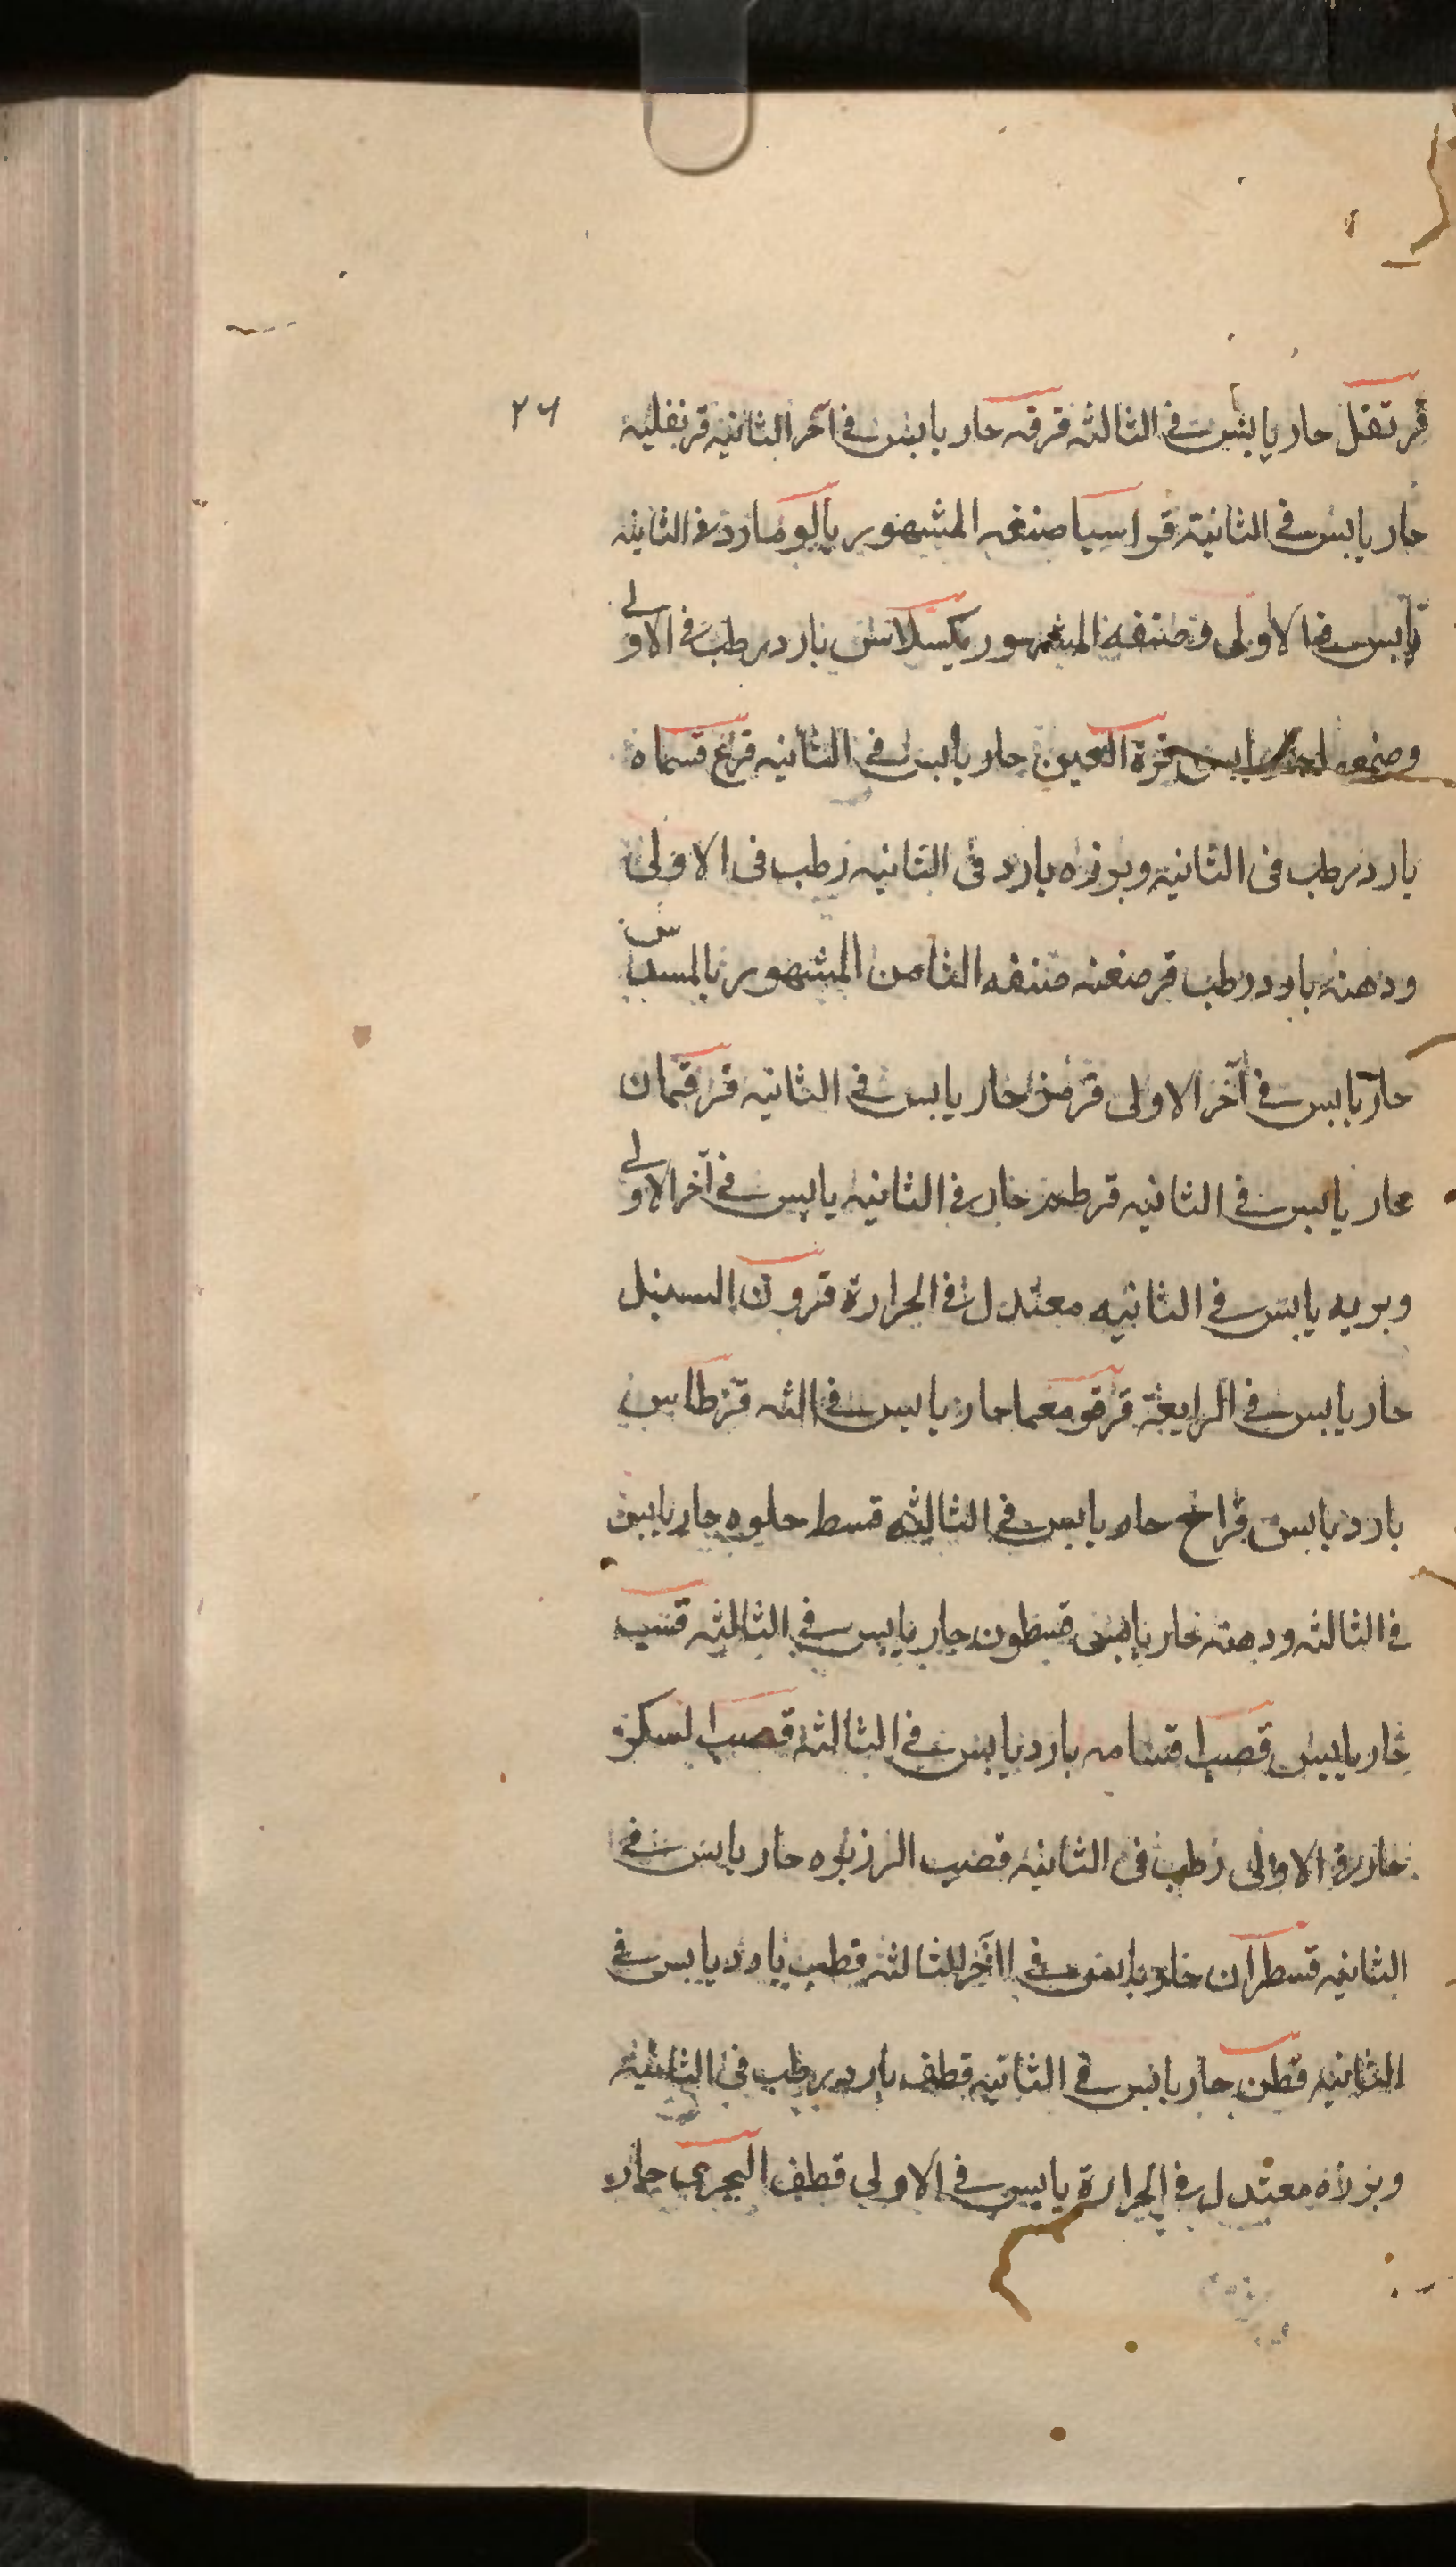 ٢٦
قرنفل حار يابس في الثالثه قرفه حار يابس في آخر الثانيه قرنفليه
حار يابس في الثانية قراسيا صنفه المشهور بالو بارد في الثانيه
يابس في الاولى وصنفه المشهور بكيلاس بارد رطب في الاولى
وصمغه قرة العين حار يابس في الثانيه قرع قسماه
بارد رطب في الثانية وبرزه بارد في الثانيه رطب في الاولى
ودهنه بارد رطب قرصعنه صنفه الثامن المشهور بالمسدس
حار يابس في آخر الاولى قرمز حار يابس في الثانيه قرقمان
حار يابس في الثانيه قرطم حار في الثانيه يابس في آخر الاولى
وبريه يابس في الثانيه معتدل في الحرارة قرون السنبل
حار يابس في الرابعة قرقومعما حار يابس في الثه قرطاس
بارد يابس قراح حار يابس في الثالثه قسط حلوه حار يابس
في الثالثه ودهنه حار يابس قسطون حار يابس في الثالثه قسب
حار يابس قصب قشامه بارد يابس في الثالثه قصب السكر
حار في الاولى رطب في الثانيه قصب الزريره حار يابس في
الثانيه قسطران حار يابس في الآخر الثالثه قطب بارد يابس في
الثانيه قطن حار يابس في الثانيه قطف بارد رطب في الثانيه
وبزره معتدل في الحرارة يابس في الاولى قطف البحري حار